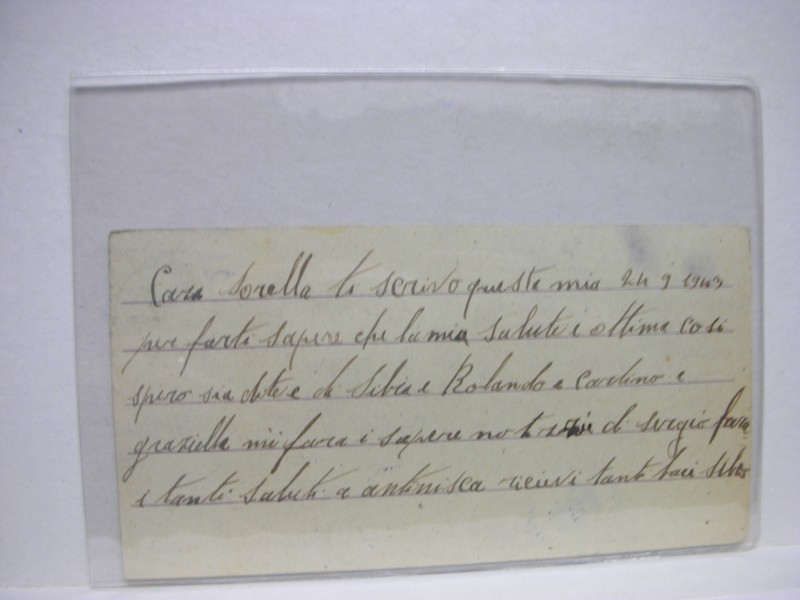 Cara Sorella ti scrivo questa mia 24 9 1943
per farti sapere che la mia salute è ottima cosi
spero sia di te e di Silvia e Rolando e Carlino e
graziella mi farai sapere notizie di sergio farai
i tanti saluti a antinisca ricievi tanti baci